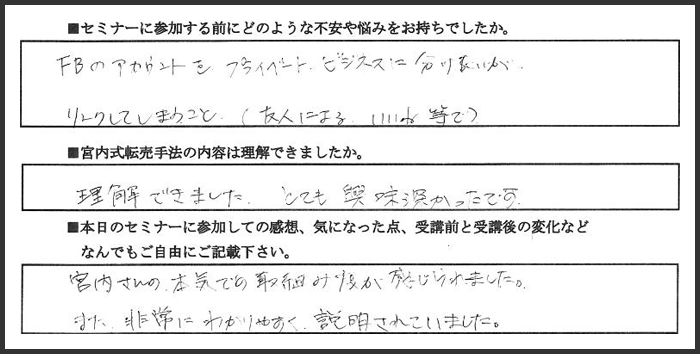 ■セミナーに参加する前にどのような不安や悩みをお持ちでしたか。
FBのアカウントを プライベート、ビジネスに 分け
リンクしてしまうこと。(友人による、いいね 等で)
■宮内式転売手法の内容は理解できましたか。
理解できました。とても興味深かったです。
■本日のセミナーに参加しての感想、気になった点、受講前と受講後の変化など
なんでもご自由にご記載下さい。
宮内さんの、本気での取組み が感じられました。
また、非常にわかりやすく、説明されていました。